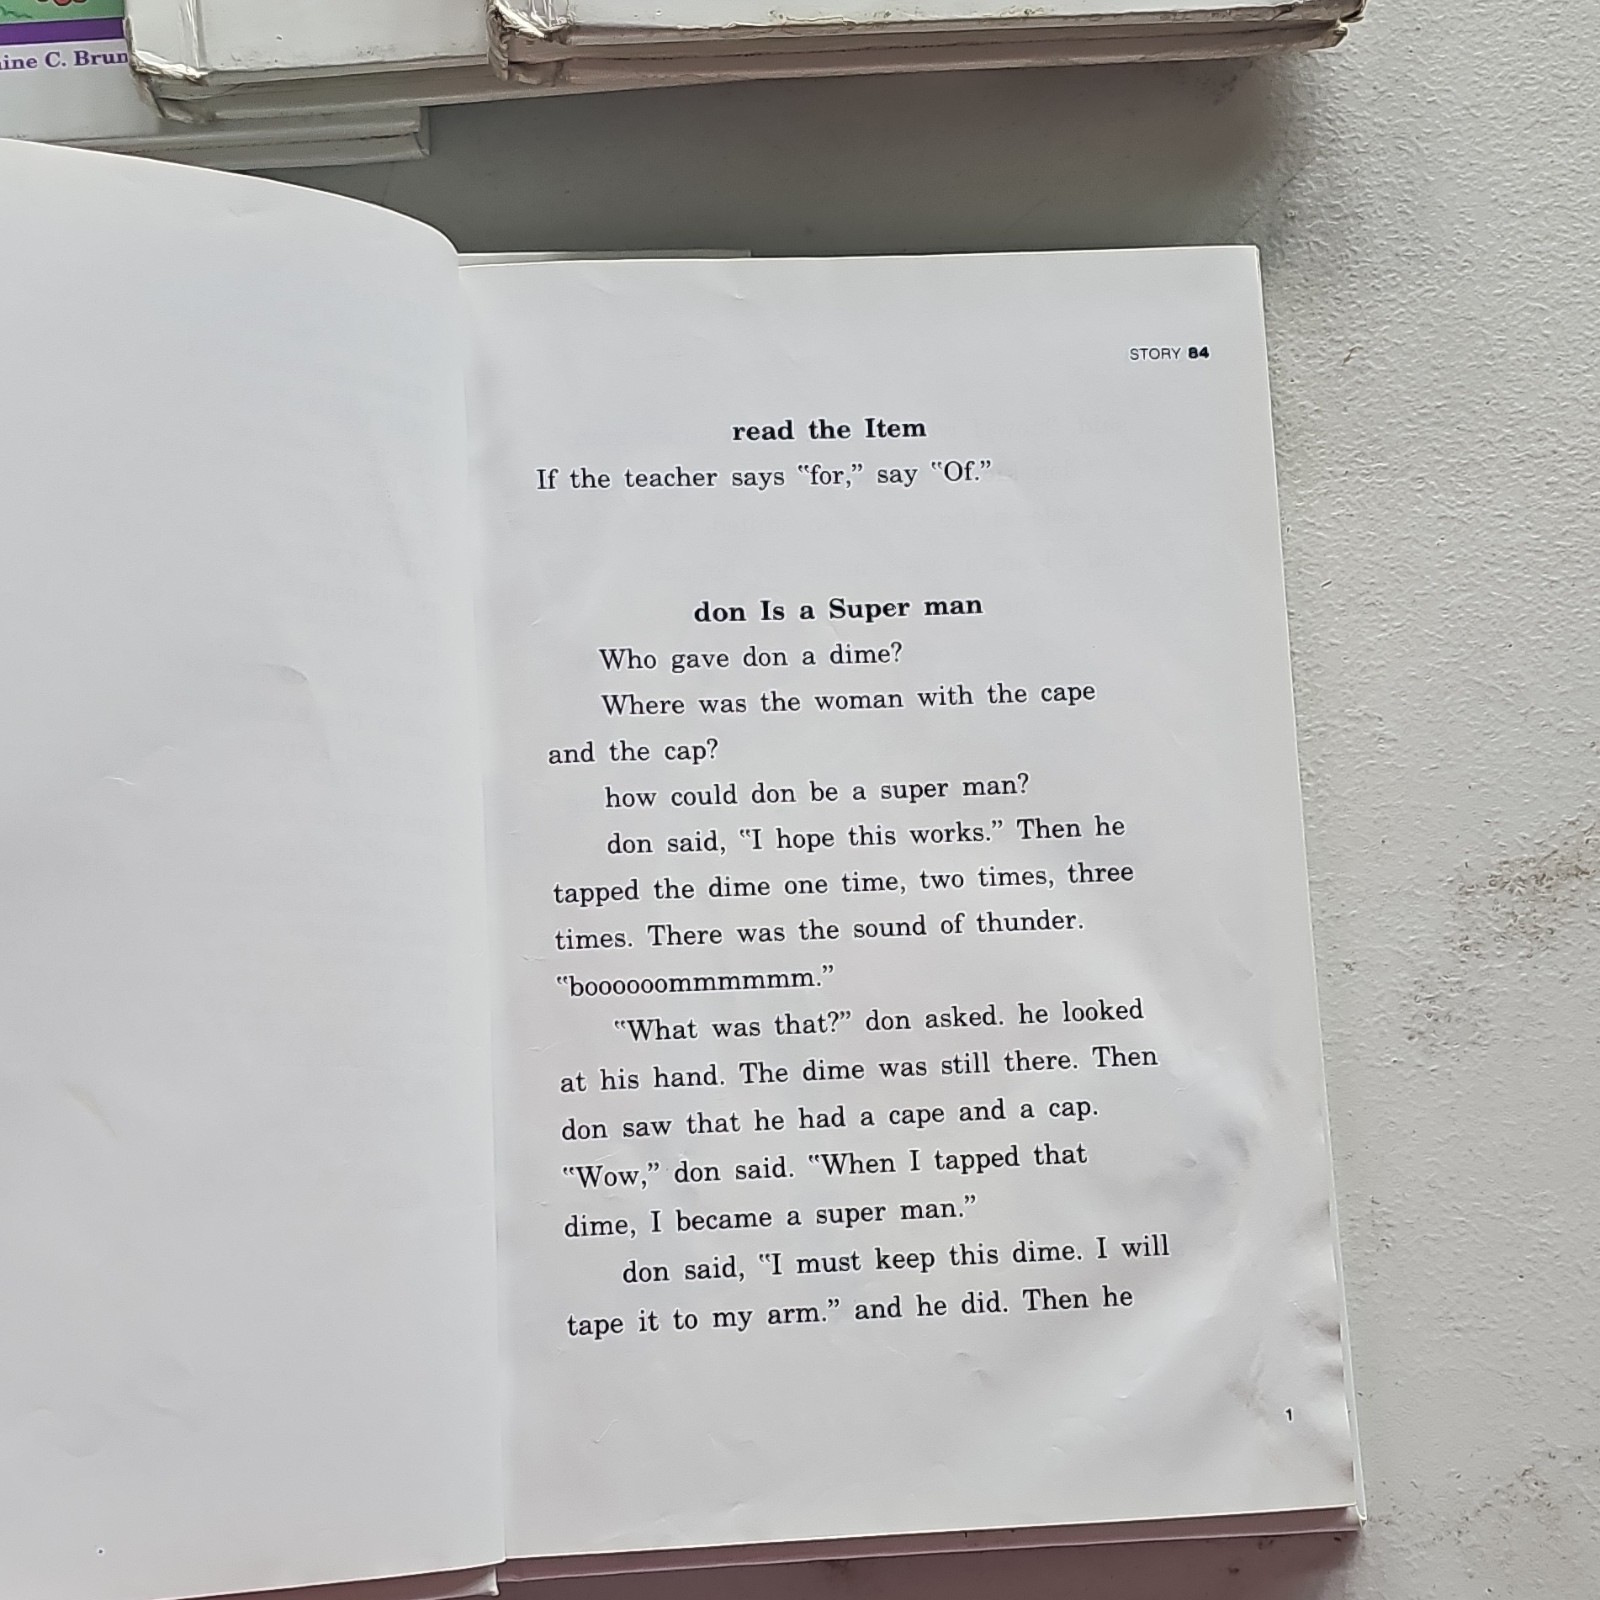 ine C. Brun
STORY 84
read the Item
If the teacher says "for," say "Of."
don Is a Super man
Who gave don a dime?
Where was the woman with the cape
and the cap?
how could don be a super man?
don said, "I hope this works." Then he
tapped the dime one time, two times, three
times. There was the sound of thunder.
"boooooommmmmm."
"What was that?" don asked. he looked
at his hand. The dime was still there. Then
don saw that he had a cape and a cap.
"Wow," don said. "When I tapped that
dime, I became a super man."
don said, "I must keep this dime. I will
tape it to my arm." and he did. Then he
1